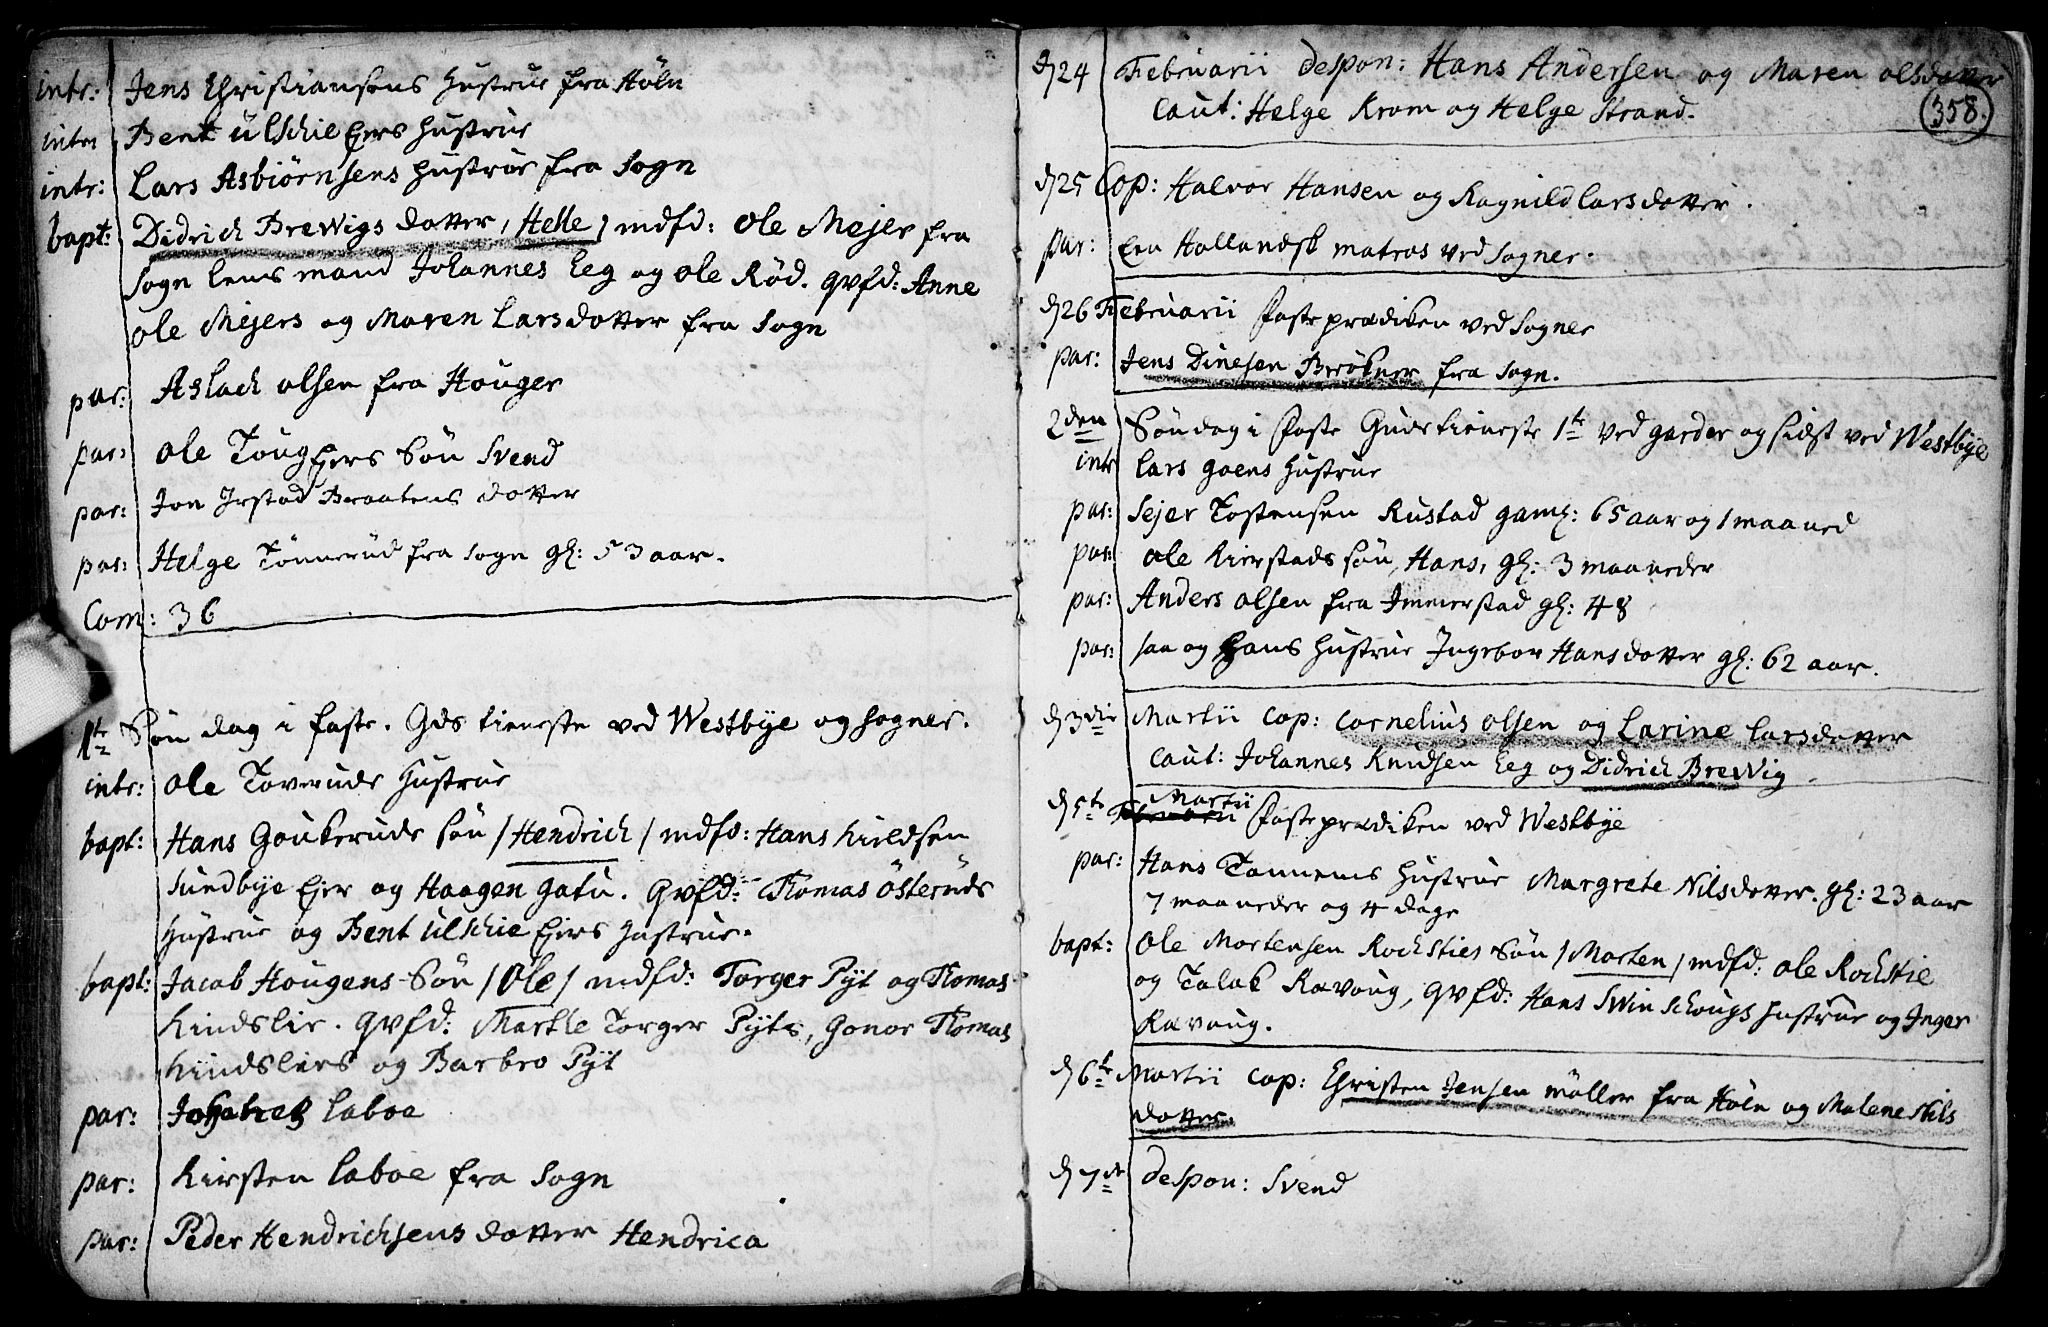 intr: Jens Christiansens Hustrue fra Höln
intr Bent Ulschie Ejers Hustrue
intr: Lars Asbiörnsens Hustrue fra Sogn
bapt: Didrich Brewigs dotter, Helle / mdfd: Ole Mejer fra
Sogn lensmand Johannes Eeg og Ole Röd. qvfd: Anne
Ole Mejers og Maren Larsdotter fra Sogn
par: Aslach Olsen fra Houger
par: Ole Toug Ejers Sön Svend
par: Jon Irstad Braatens dotter
par: Helge Tönnerud fra Sogn gl: 53 aar.
Com: 36
1te Söndag i faste. Gds tieneste ved Westbye og Sogner.
intr: Ole Toveruds Hustrue
bapt: Hans Goukeruds sön / Hendrich / mdfd: Hans Kieldsen
Sundbye Ejer og Haagen Gatu. Qvfd: Thomas Österuds
Hustrue og Bent Ulschie Ejers Hustrue.
bapt: Jacob Hougens Sön / Ole / mdfd: Torger Pyt og Thomas
Kindslie. qvfd: Marthe Torger Pyts, Gonor Thomas
Kindslies og Barbro Pyt
par: Laboe
par: Kirsten Laboe fra Sogn
par: Peder Hendrichsens dotter Hendrica
358.
d 24 Februarii despon: Hans Andersen og Maren Olsdotter
Caut: Helge Krom og Helge Strand.
d 25 Cop: Halvor Hansen og Ragnild Larsdotter.
par: Een Hollandsk matros ved Sogner.
d 26 Februarii Faste prædiken ved Sogner
par: Jens Dinesen Brökner fra Sogn.
2den Söndag i Faste Guds tieneste 1te ved garder og sidst ved Westbye
intr Lars Goens Hustrue
par: Sejer Tostensen Rustad gaml: 65 aar og 1 maaned
par: Ole Kierstads sön, Hans, gl: 3 maaneder
par: Anders Olsen fra Immerstad gl: 48
par: saa og Hans Hustrue Ingebor Hansdotter gl: 62 aar.
d 3die Martii Cop: Cornelius Olsen og Larine Larsdotter
Caut: Johannes Knudsen Eeg og Didrich Brewig.
d 5te Martii Faste prædiken ved Westbye
par: Hans Tonnems Hustrue Margrete Nilsdotter. gl: 23 aar
7 maaneder og 4 dage
bapt: Ole Mortensen Rochsties Sön / Morten / mdfd: Ole Rochstie
og Talak Ravoug, qvfd: Hans Swinschougs Hustrue og Inger
Ravoug.
d 6te Martii Cop: Christen Jensen Möller fra Höln og Malene Nils
dotter.
d 7de despon: Svend